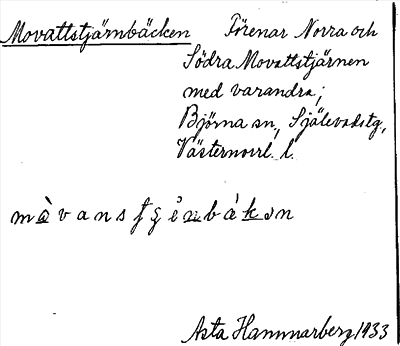 Movattstjärnbäcken Förenar Norra och
Södra Movattstjärnen
med varandra;
Björna sn, Själevadstg,
Västernorrl. l.
Asta Hammarberg 1933